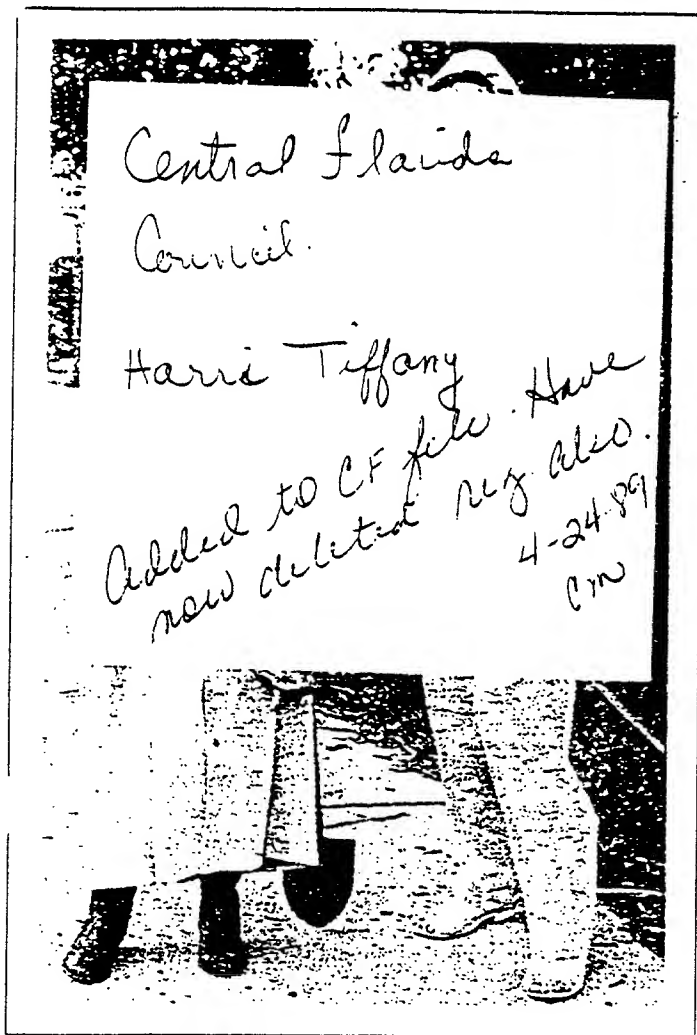 Central Florida
Council.
Harris Tiffany
Added to CF file. Have
now deleted reg also.
4-24-89
cm